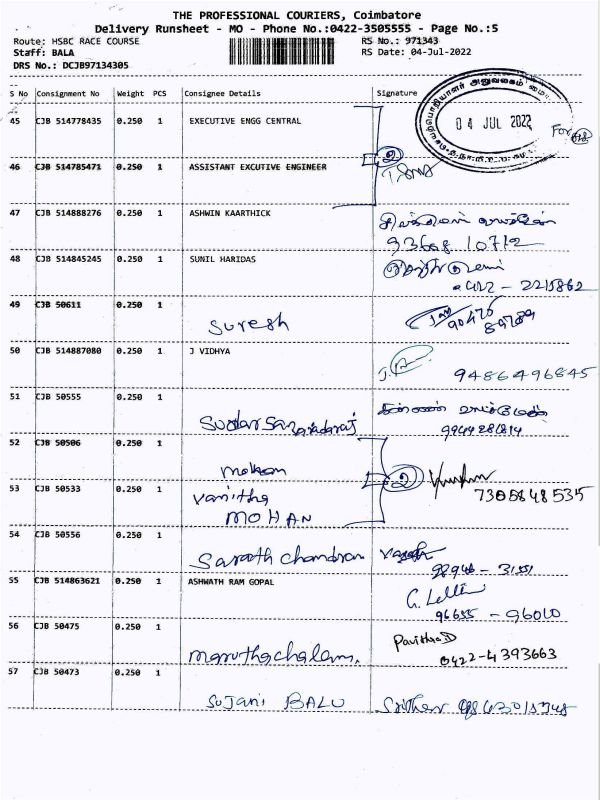 THE PROFESSIONAL COURIERS, Coimbatore
Delivery Runsheet - MO - Phone No.:0422-3505555 - Page No.:5
Route: HSBC RACE COURSE RS No.: 971343
Staff: BALA RS Date: 04-Jul-2022
DRS No.: DCJB97134305
S No Consignment No Weight PCS Consignee Details Signature
04 JUL 2022
For
45 CJB 514778435 0.250 1 EXECUTIVE ENGG CENTRAL
2
46 CJB 514785471 0.250 1 ASSISTANT EXCUTIVE ENGINEER
47 CJB 514888276 0.250 1 ASHWIN KAARTHICK
93668 10712
48 CJB 514845245 0.250 1 SUNIL HARIDAS
0422 - 2215862
49 CJB 50611 0.250 1 Suresh
50 CJB 514887080 0.250 1 J VIDHYA
9486496845
51 CJB 50555 0.250 1
52 CJB 50506 0.250 1 Mohan
2
53 CJB 50533 0.250 1 Vanitha
MOHAN
7305848535
54 CJB 50556 0.250 1 Sarath Chandran
98946 - 31551
55 CJB 514863621 0.250 1 ASHWATH RAM GOPAL
96655 - 96010
56 CJB 50475 0.250 1 Maruthachalam. Pavithra D
0422-4393663
57 CJB 50473 0.250 1 Sujani BALU